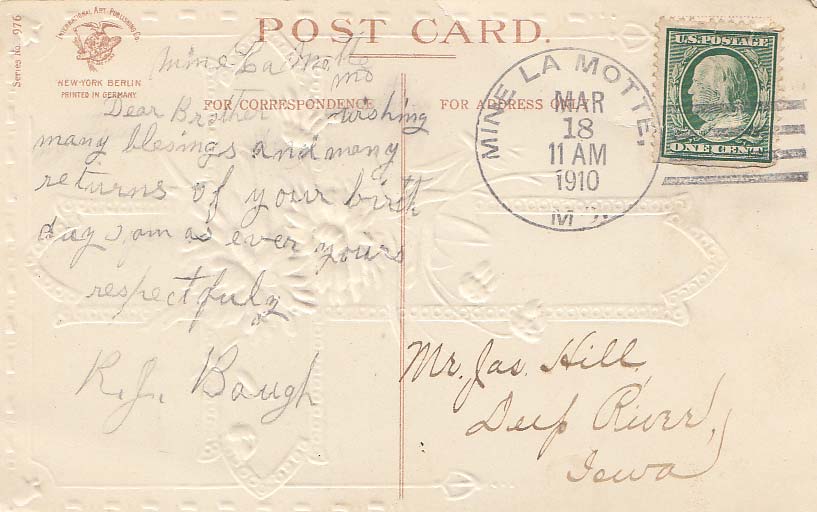 Series No. 976
INTERNATIONAL ART PUBLISHING CO.
NEW-YORK BERLIN
PRINTED IN GERMANY.
POST CARD.
FOR CORRESPONDENCE
FOR ADDRESS ONLY
Mine La Motte
Mo
Dear Brother wishing
many blesings and many
returns of your birth
day I am as ever yours
respectfuly
R. J. Baugh
MINE LA MOTTE,
MAR
18
11 AM
1910
MO.
U.S. POSTAGE
ONE CENT
Mr. Jas. Hill
Deep River,
Iowa